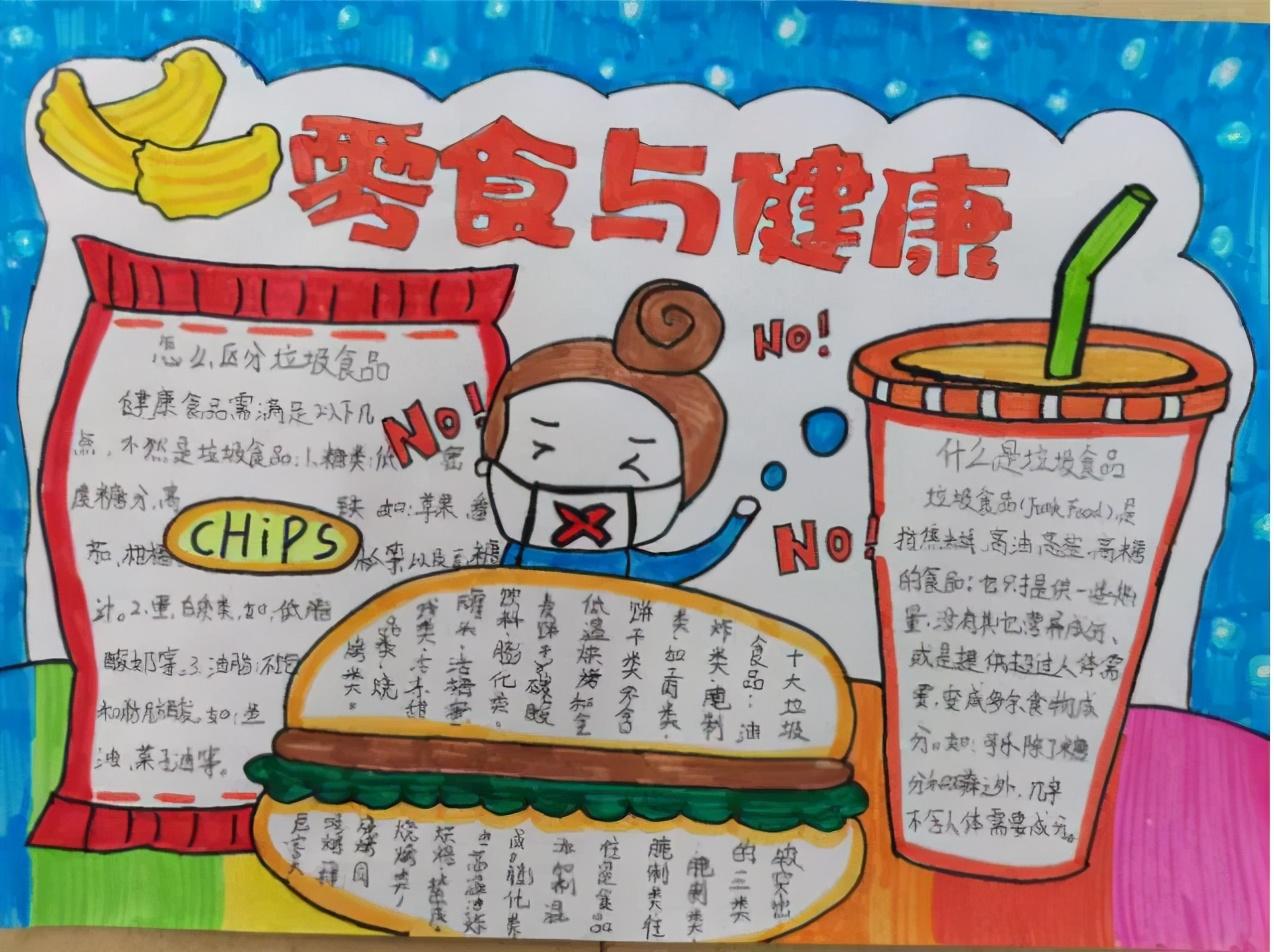 零食与健康
怎么区分垃圾食品
健康食品需满足以下几
点，不然是垃圾食品：1、糖类：低
度糖分，高
CHIPS
如：苹果，番
茄，柑橘
以及
糖
汁。2、蛋白质类，如，低脂
酸奶等。3、油脂：不饱
和脂肪酸，如：
油，菜子油等。
No!
No!
No!
什么是垃圾食品
垃圾食品(Junk Food)，是
指 高油，高盐，高糖
的食品；它只提供一些热
量，没有其它营养成分、
或是提供超过人体需
要，变成多余食物成
分。如：可乐除了糖
分和磷之外，几乎
不含人体需要成分。
十大垃圾
食品：油
炸类、腌制
类、加工肉类、
饼干类(不含
低温烘烤和全
麦饼干)、碳酸
饮料、膨化类。
罐头、话梅蜜
饯类、冷冻甜
品类、烧
烤类。
较突出
的三类
腌制类
腌制类往
往是食品
添加剂混
成，膨化类
由高温油炸
烘焙
烧烤类，